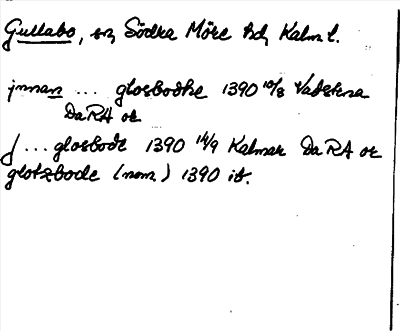 Gullabo, sn, Södra Möre hd, Kalm l.
jnnan ... glosbodhe 1390 10/8 Vadstena
DaRA or
J ... glosbode 1390 14/9 Kalmar DaRA or
glotzbode (nom.) 1390 ib.